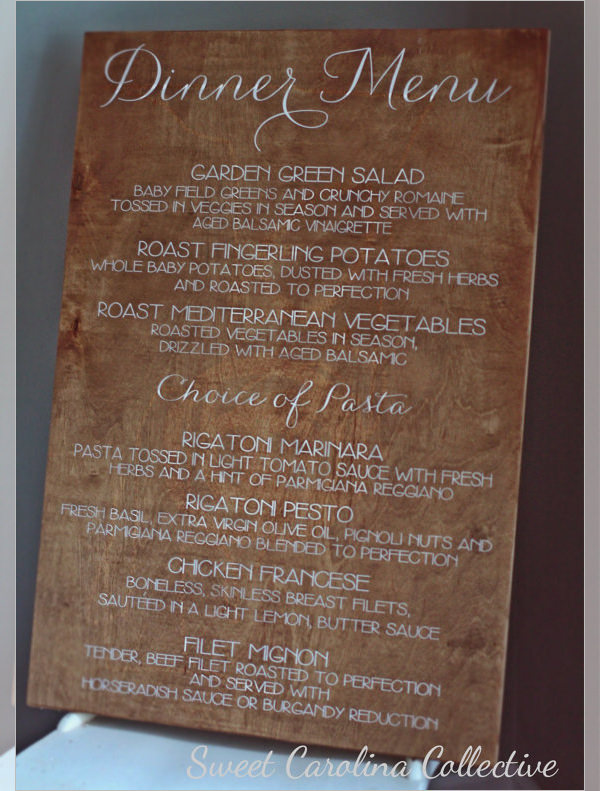 Dinner Menu
GARDEN GREEN SALAD
BABY FIELD GREENS AND CRUNCHY ROMAINE
TOSSED IN VEGGIES IN SEASON AND SERVED WITH
AGED BALSAMIC VINAIGRETTE
ROAST FINGERLING POTATOES
WHOLE BABY POTATOES, DUSTED WITH FRESH HERBS
AND ROASTED TO PERFECTION
ROAST MEDITERRANEAN VEGETABLES
ROASTED VEGETABLES IN SEASON,
DRIZZLED WITH AGED BALSAMIC
Choice of Pasta
RIGATONI MARINARA
PASTA TOSSED IN LIGHT TOMATO SAUCE WITH FRESH
HERBS AND A HINT OF PARMIGIANA REGGIANO
RIGATONI PESTO
FRESH BASIL, EXTRA VIRGIN OLIVE OIL, PIGNOLI NUTS AND
PARMIGIANA REGGIANO BLENDED TO PERFECTION
CHICKEN FRANCESE
BONELESS, SKINLESS BREAST FILETS,
SAUTÉED IN A LIGHT LEMON, BUTTER SAUCE
FILET MIGNON
TENDER, BEEF FILET ROASTED TO PERFECTION
AND SERVED WITH
HORSERADISH SAUCE OR BURGANDY REDUCTION
Sweet Carolina Collective